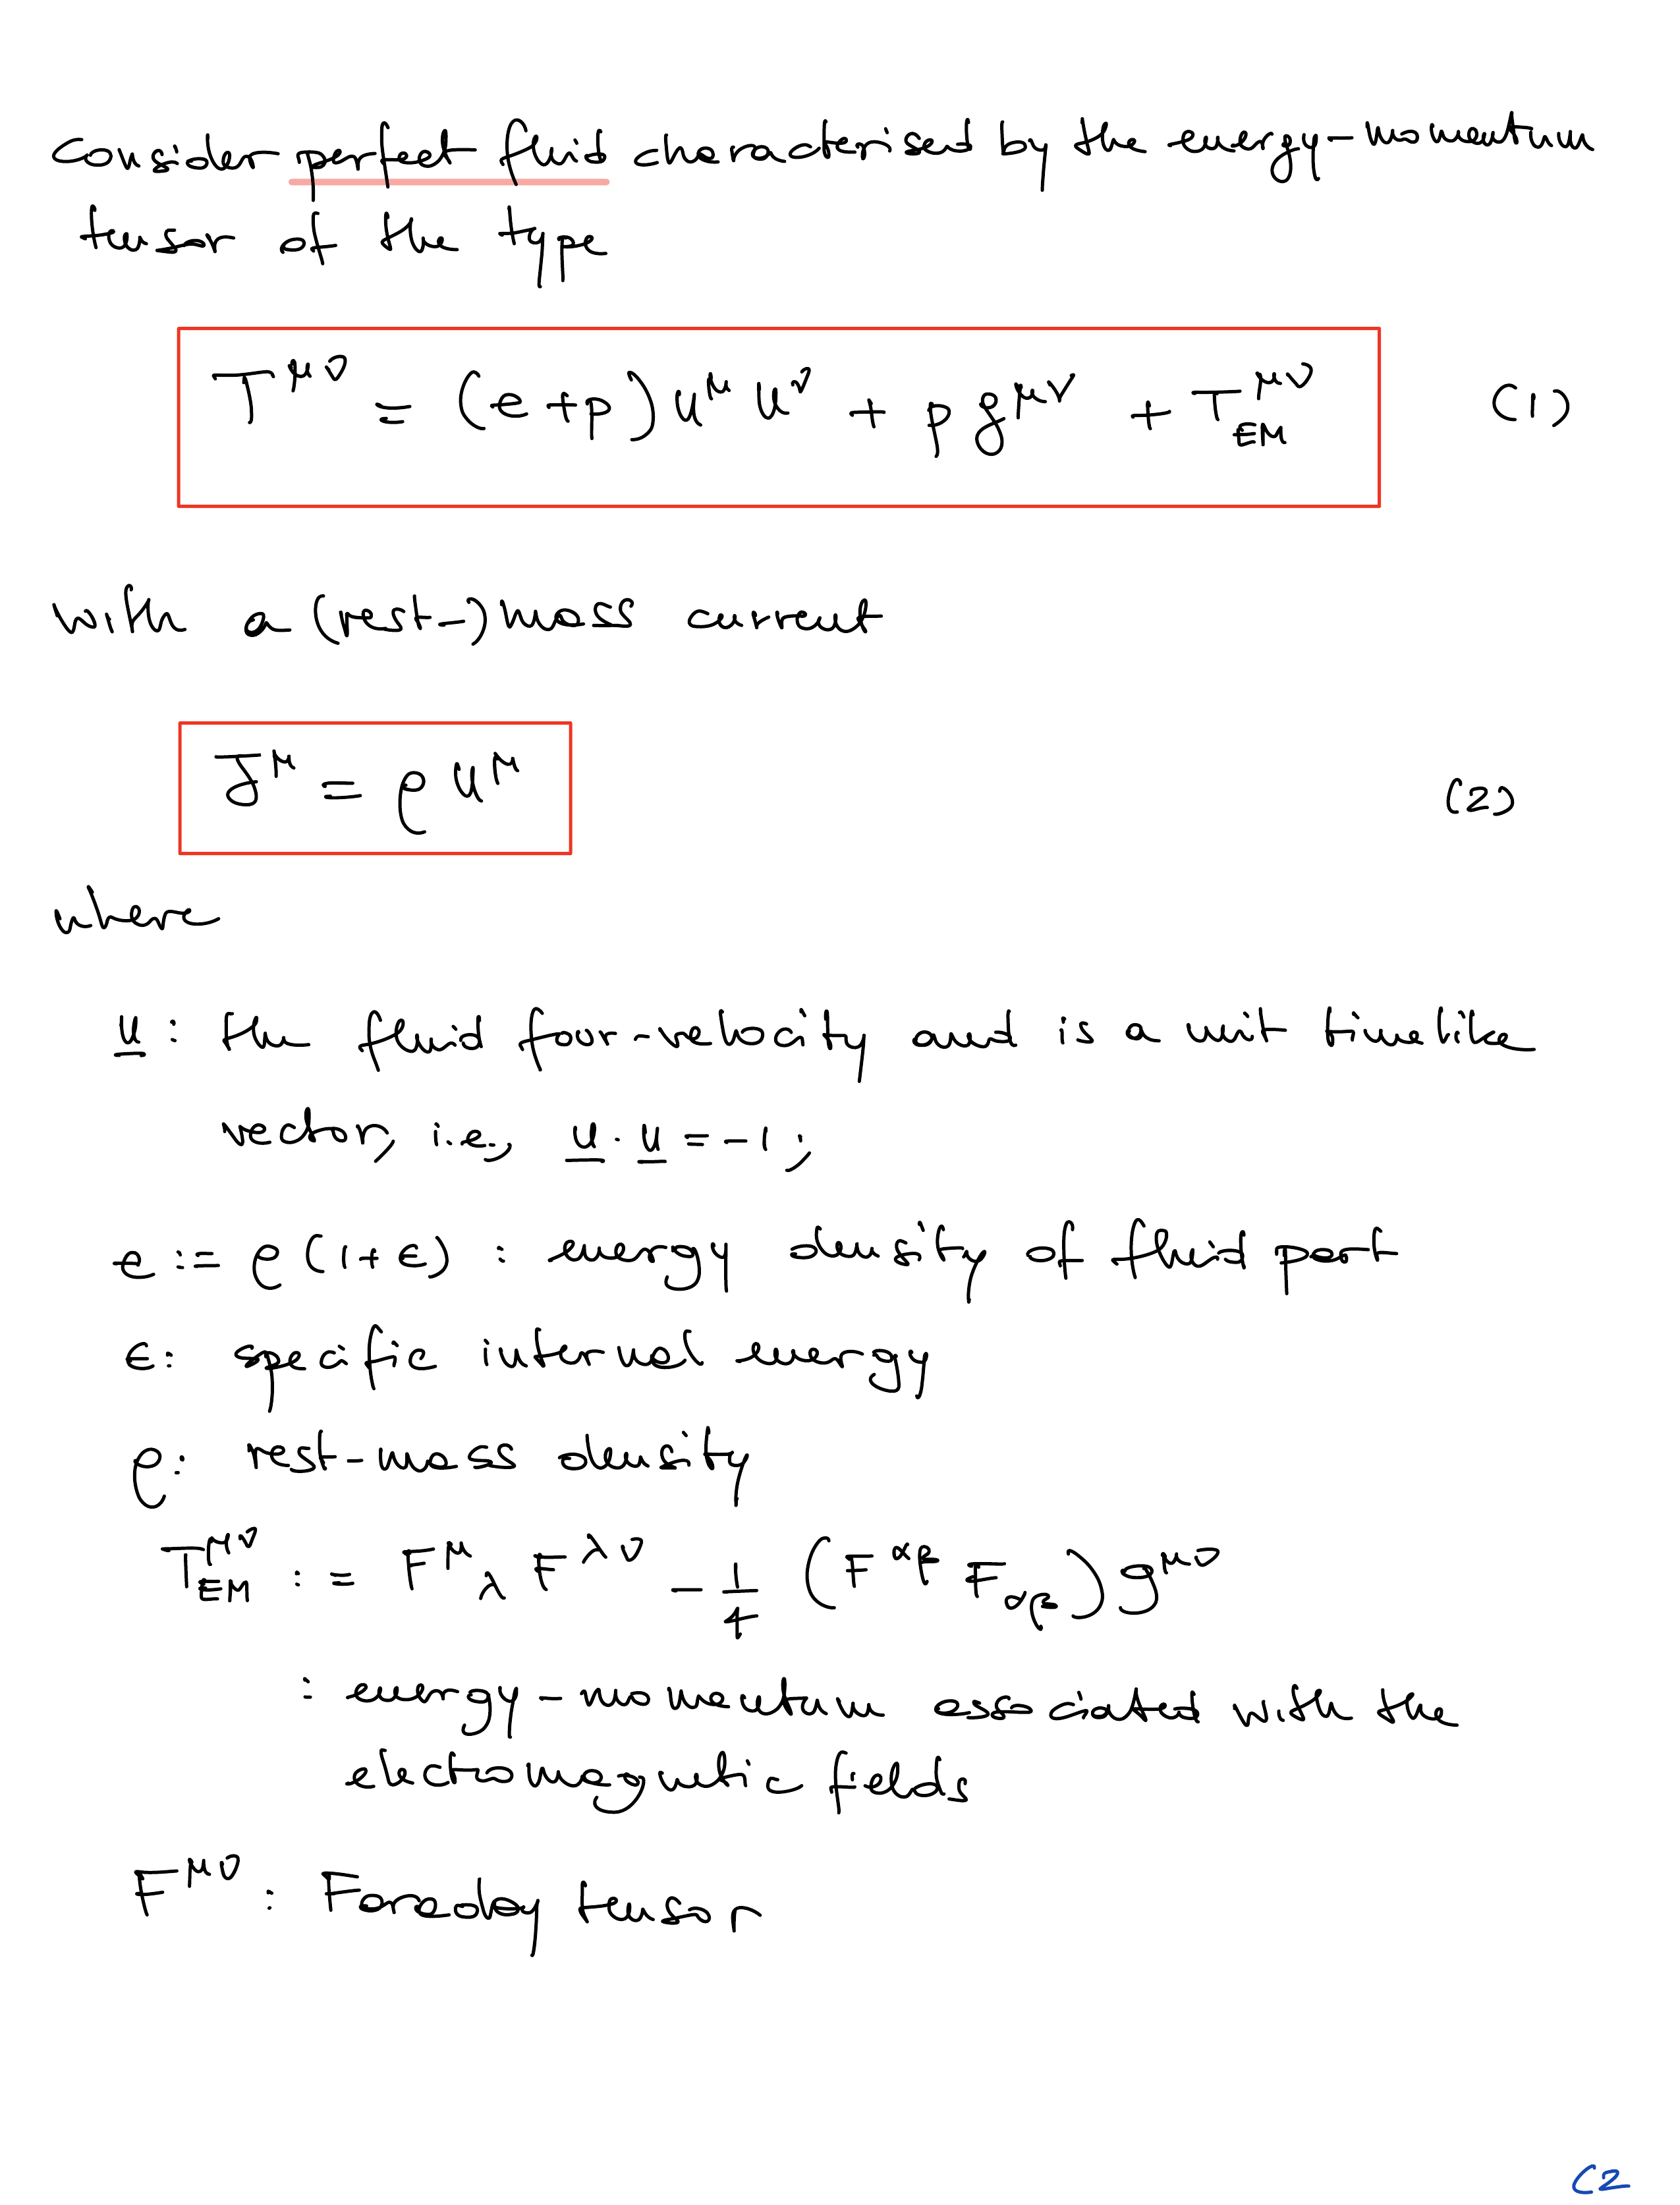 consider perfect fluid characterised by the energy-momentum
tensor of the type
T^{μν} = (e+p) u^μ u^ν + p g^{μν} + T_{EM}^{μν} (1)
with a (rest-) mass current
J^μ = ρ u^μ (2)
where
u: the fluid four-velocity and is a unit timelike
vector, i.e., u · u = -1;
e := ρ (1+ε) : energy density of fluid part
ε: specific internal energy
ρ: rest-mass density
T_{EM}^{μν} := F^μ_λ F^{λν} - 1/4 (F^{αβ} F_{αβ}) g^{μν}
: energy-momentum associated with the
electromagnetic fields
F^{μν} : Faraday tensor
C2